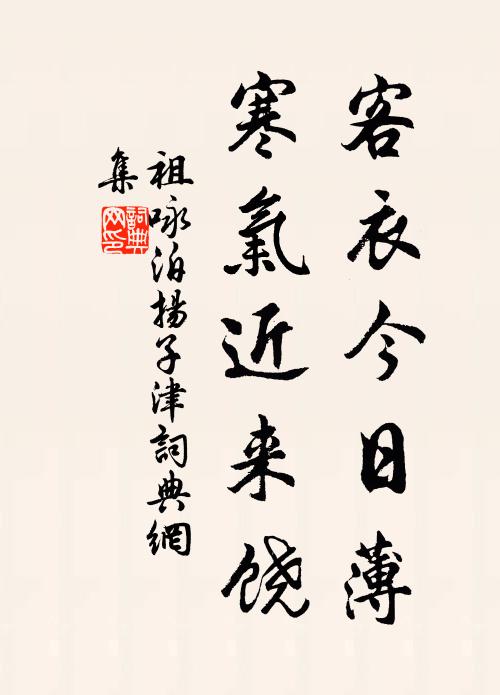 客衣今日薄
寒氣近来饶
祖咏泊揚子津詞典網
集
詞典
网印